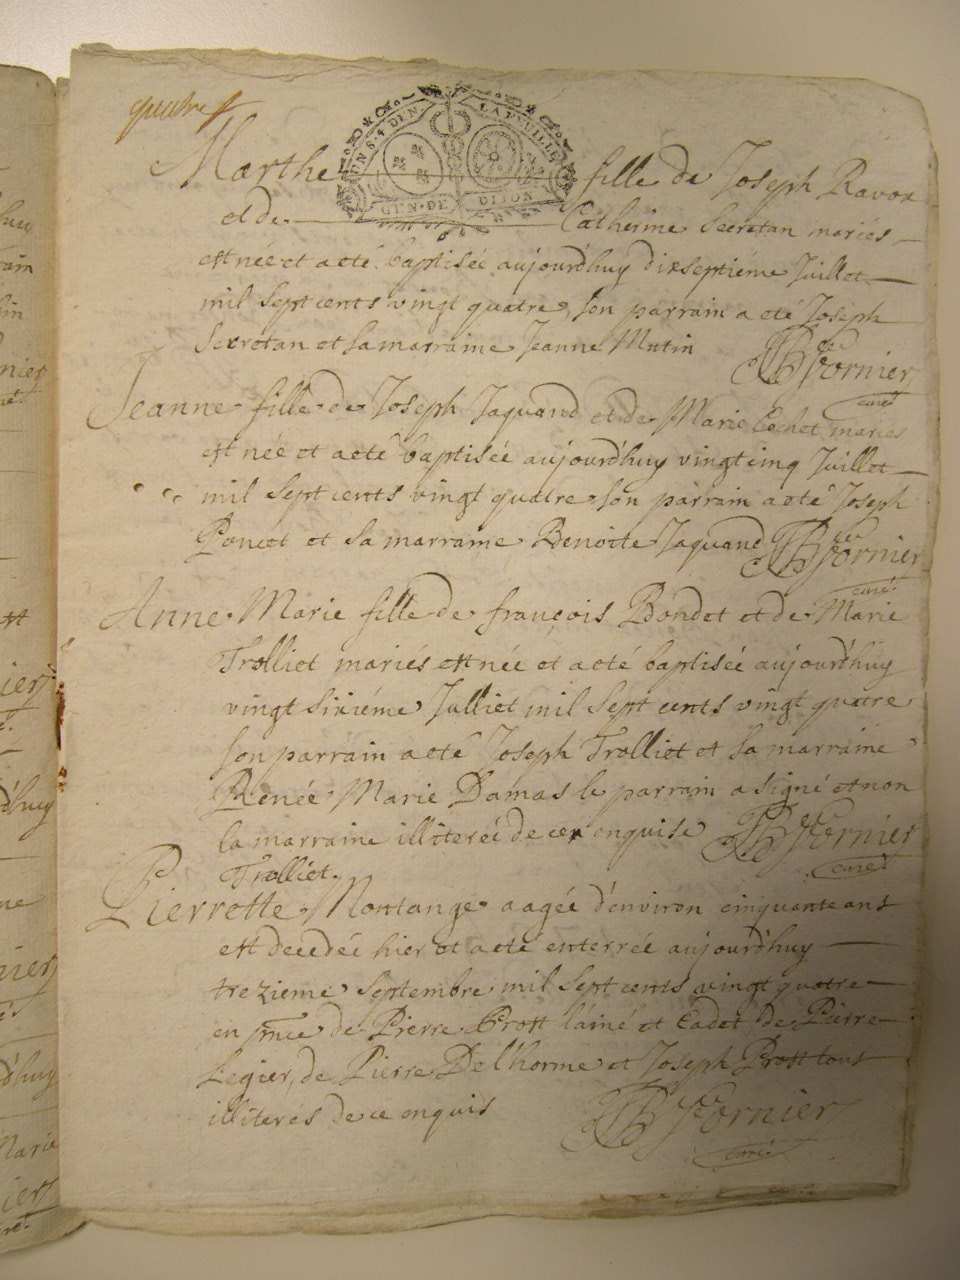 quatre
UN S. 4 DEN. LA FEUILLE
GEN. DE DIJON
Marthe fille de Joseph Ravox
et de Catherine Secretan mariés
est née et a eté baptisée aujourd'huy dixseptiéme Juillet
mil sept cents vingt quatre, son parrain a eté Joseph
Secretan et sa marraine Jeanne Mutin Fornier
curé
Jeanne fille de Joseph Jaquand et de Marie Cochet mariés
est née et a eté baptisée aujourd'huy vingt cinq Juillet
mil sept cents vingt quatre son parrain a eté Joseph
Poncet et sa marraine Benoite Jaquand Fornier
curé
Anne Marie fille de françois Bondet et de Marie
Trolliet mariés est née et a eté baptisée aujourd'huy
vingt sixiéme Julliet mil sept cents vingt quatre
son parrain a eté Joseph Trolliet et sa marraine
Renée Marie Damas le parrain a signé et non
la marraine illiterée de ce enquise Fornier
Trolliet. curé
Pierrette Montange aagée d'environ cinquante ans
est decedée hier et a eté enterrée aujourd'huy
trezieme septembre mil sept cents vingt quatre
en pnce de Pierre Prost lainé et Cadet de Pierre
Legier, de Pierre Delhorme et Joseph Prost tous
illiterés de ce enquis Fornier
curé